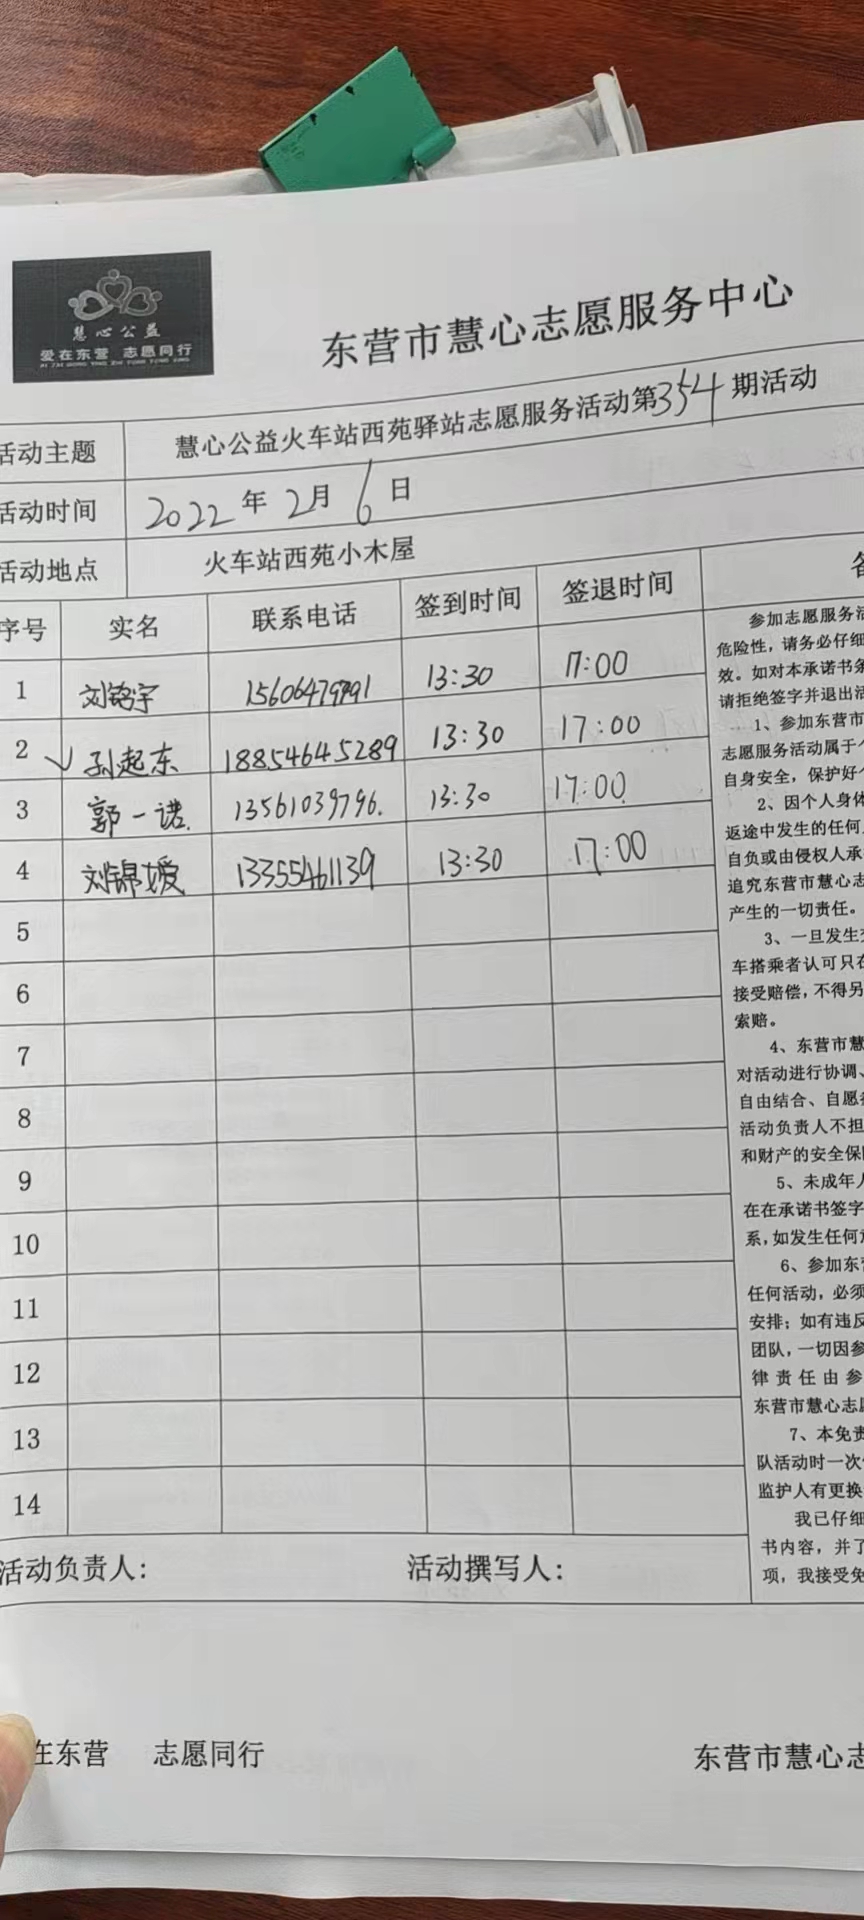 慧心公益
爱在东营 志愿同行
东营市慧心志愿服务中心
活动主题 慧心公益火车站西苑驿站志愿服务活动第354期活动
活动时间 2022年2月6日
活动地点 火车站西苑小木屋
序号 实名 联系电话 签到时间 签退时间 备
1 刘铭宇 13:30 17:00
2 孙起东 18854645289 13:30 17:00
3 郭一诺 13561039796. 13:30 17:00
4 刘锦媛 13355461139 13:30 17:00
5
6
7
8
9
10
11
12
13
14
参加志愿服务活
危险性，请务必仔细
效。如对本承诺书条
请拒绝签字并退出活
1、参加东营市
志愿服务活动属于个
自身安全，保护好个
2、因个人身体
返途中发生的任何
自负或由侵权人承
追究东营市慧心志
产生的一切责任。
3、一旦发生交
车搭乘者认可只在
接受赔偿，不得另
索赔。
4、东营市慧
对活动进行协调、
自由结合、自愿参
活动负责人不担
和财产的安全保
5、未成年人
在在承诺书签字
系，如发生任何
6、参加东营
任何活动，必须
安排；如有违反
团队，一切因参
律责任由参
东营市慧心志愿
7、本免责
队活动时一次
监护人有更换
我已仔细
书内容，并了
项，我接受免
活动负责人： 活动撰写人：
在东营 志愿同行 东营市慧心志